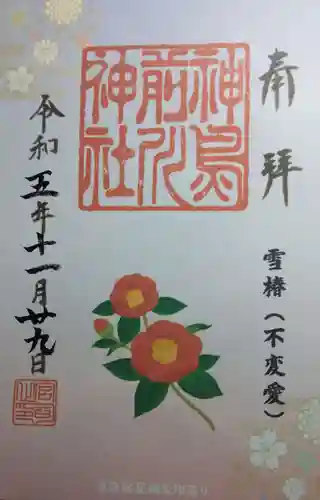 奉拝
雪椿（不変愛）
神鳥前川神社
令和五年十一月廿九日